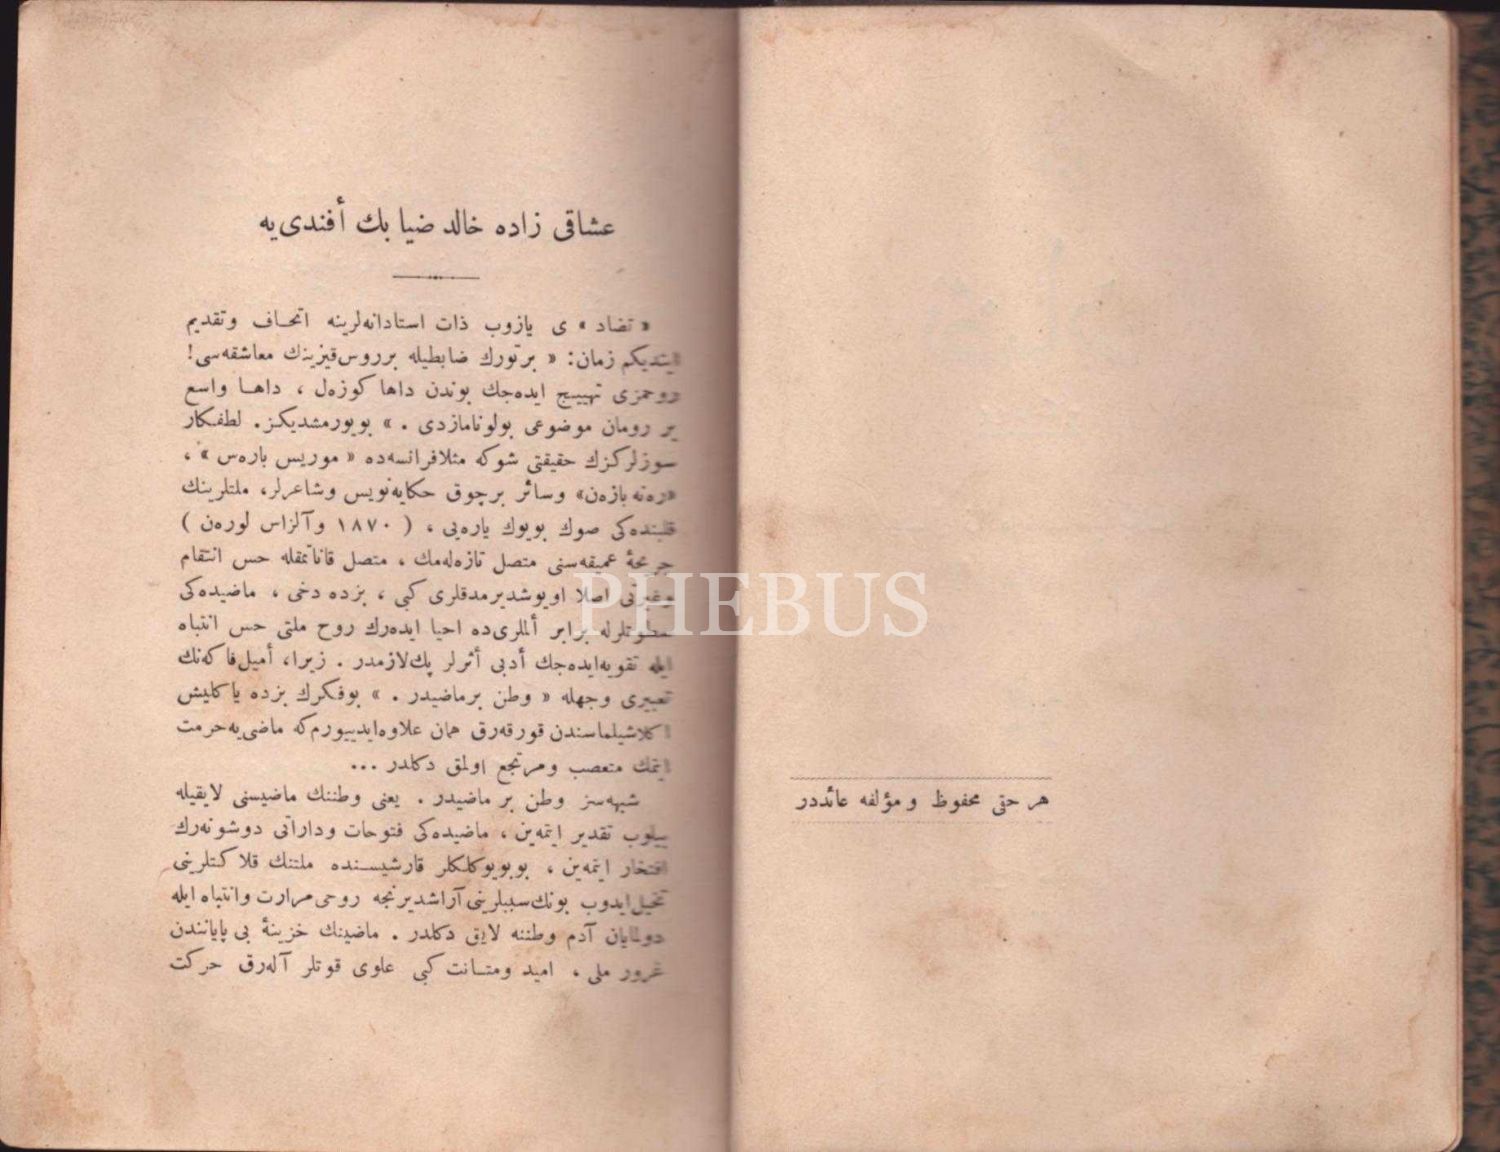 هر حقی محفوظ و مؤلفه عائددر
عشاقی زاده خالد ضیا بك أفندی‌یه
« تضاد » ی یازوب ذات استادانه‌لرینه اتحاف وتقدیم
ایتدیكم زمان: « برتورك ضابطیله برروس‌قیزینك معاشقه‌سی!
روحمزی تهییج ایده‌جك بوندن داها كوزه‌ل ، داها واسع
بر رومان موضوعی بولونامازدی . » بویورمشدیكز. لطفكار
سوزلركزك حقیقتی شوكه مثلافرانسه‌ده « موریس باره‌س » ،
«ره‌نه‌بازه‌ن» وسائر برچوق حكایه‌نویس وشاعرلر، ملتلرینك
قلبنده‌كی صوك بویوك یاره‌یی ، ( ١٨٧٠ وآلزاس لوره‌ن )
جریحهٔ عمیقه‌سنی متصل تازه‌له‌مك ، متصل قاناتمقله حس انتقام
وغیرتی اصلا اویوشدیرمدقلری كبی ، بزده دخی ، ماضیده‌كی
سطوتلرله برابر ألملری‌ده احیا ایده‌رك روح ملتی حس انتباه
ایله تقویه‌ایده‌جك أدبی أثرلر پك‌لازمدر . زیرا، أمیل‌فاكه‌نك
تعبیری وجهله « وطن برماضیدر . » بوفكرك بزده یاكلیش
اكلاشیلماسندن قورقه‌رق همان علاوه‌ایدییورم‌كه ماضی‌یه‌حرمت
ایتمك متعصب ومرتجع اولمق دكلدر ...
شبهه‌سز وطن بر ماضیدر . یعنی وطننك ماضیسنی لایقیله
بیلوب تقدیر ایتمه‌ین ، ماضیده‌كی فتوحات وداراتی دوشونه‌رك
افتخار ایتمه‌ین ، بوبویوكلكلر قارشیسنده ملتنك فلاكتلرینی
تخیل‌ایدوب بونك‌سببلرینی آراشدیرنجه روحی‌مرارت وانتباه ایله
دولمایان آدم وطننه لایق دكلدر . ماضینك خزینهٔ بی پایانندن
غرور ملی ، امید ومتانت كبی علوی قوتلر آله‌رق حركت
PHEBUS